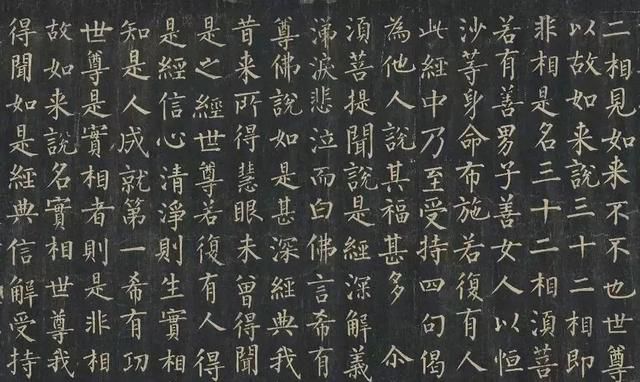 二相見如来不不也世尊
以故如来說三十二相即
非相是名三十二相須菩
若有善男子善女人以恒
沙等身命布施若復有人
此經中乃至受持四句偈
為他人說其福甚多 尒
須菩提聞說是經深解義
涕淚悲泣而白佛言希有
尊佛說如是甚深經典我
昔来所得慧眼未曾得聞
是之經世尊若復有人得
是經信心清淨則生實相
知是人成就第一希有功
世尊是實相者則是非相
故如来說名實相世尊我
得聞如是經典信解受持